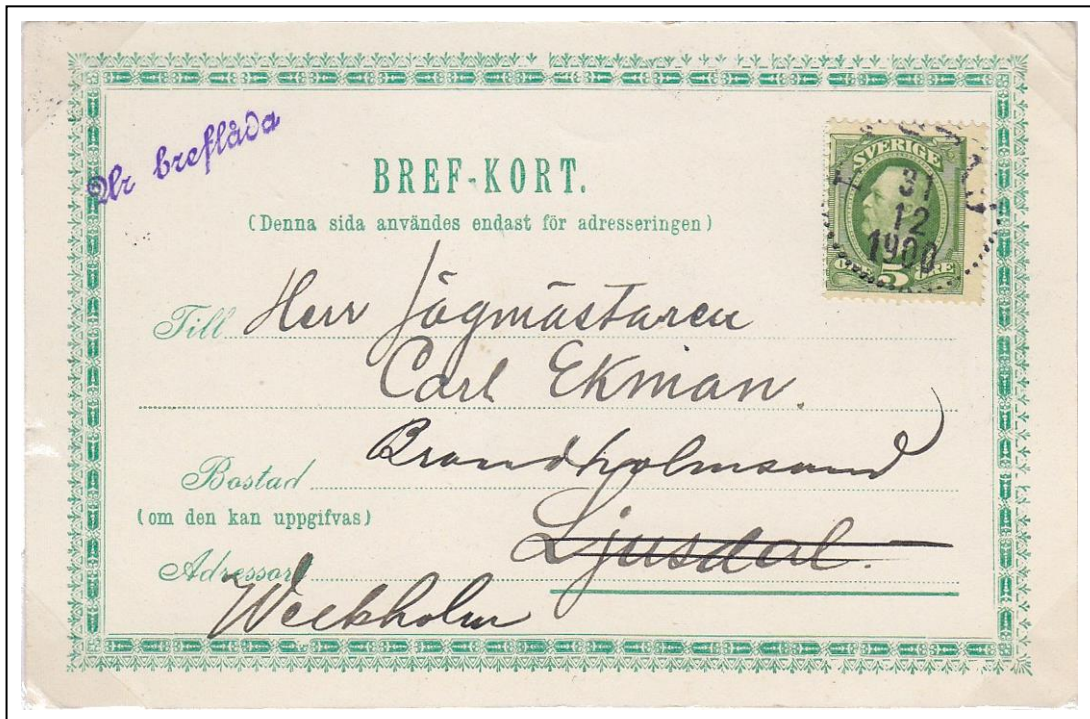 Ur breflåda
BREF-KORT.
(Denna sida användes endast för adresseringen)
SVERIGE
31
12
1900
5 ÖRE
Till Herr Jägmästaren
Carl Ekman.
Brandholmsund
Bostad
(om den kan uppgifvas)
Ljusdal.
Adressort
Weckholm